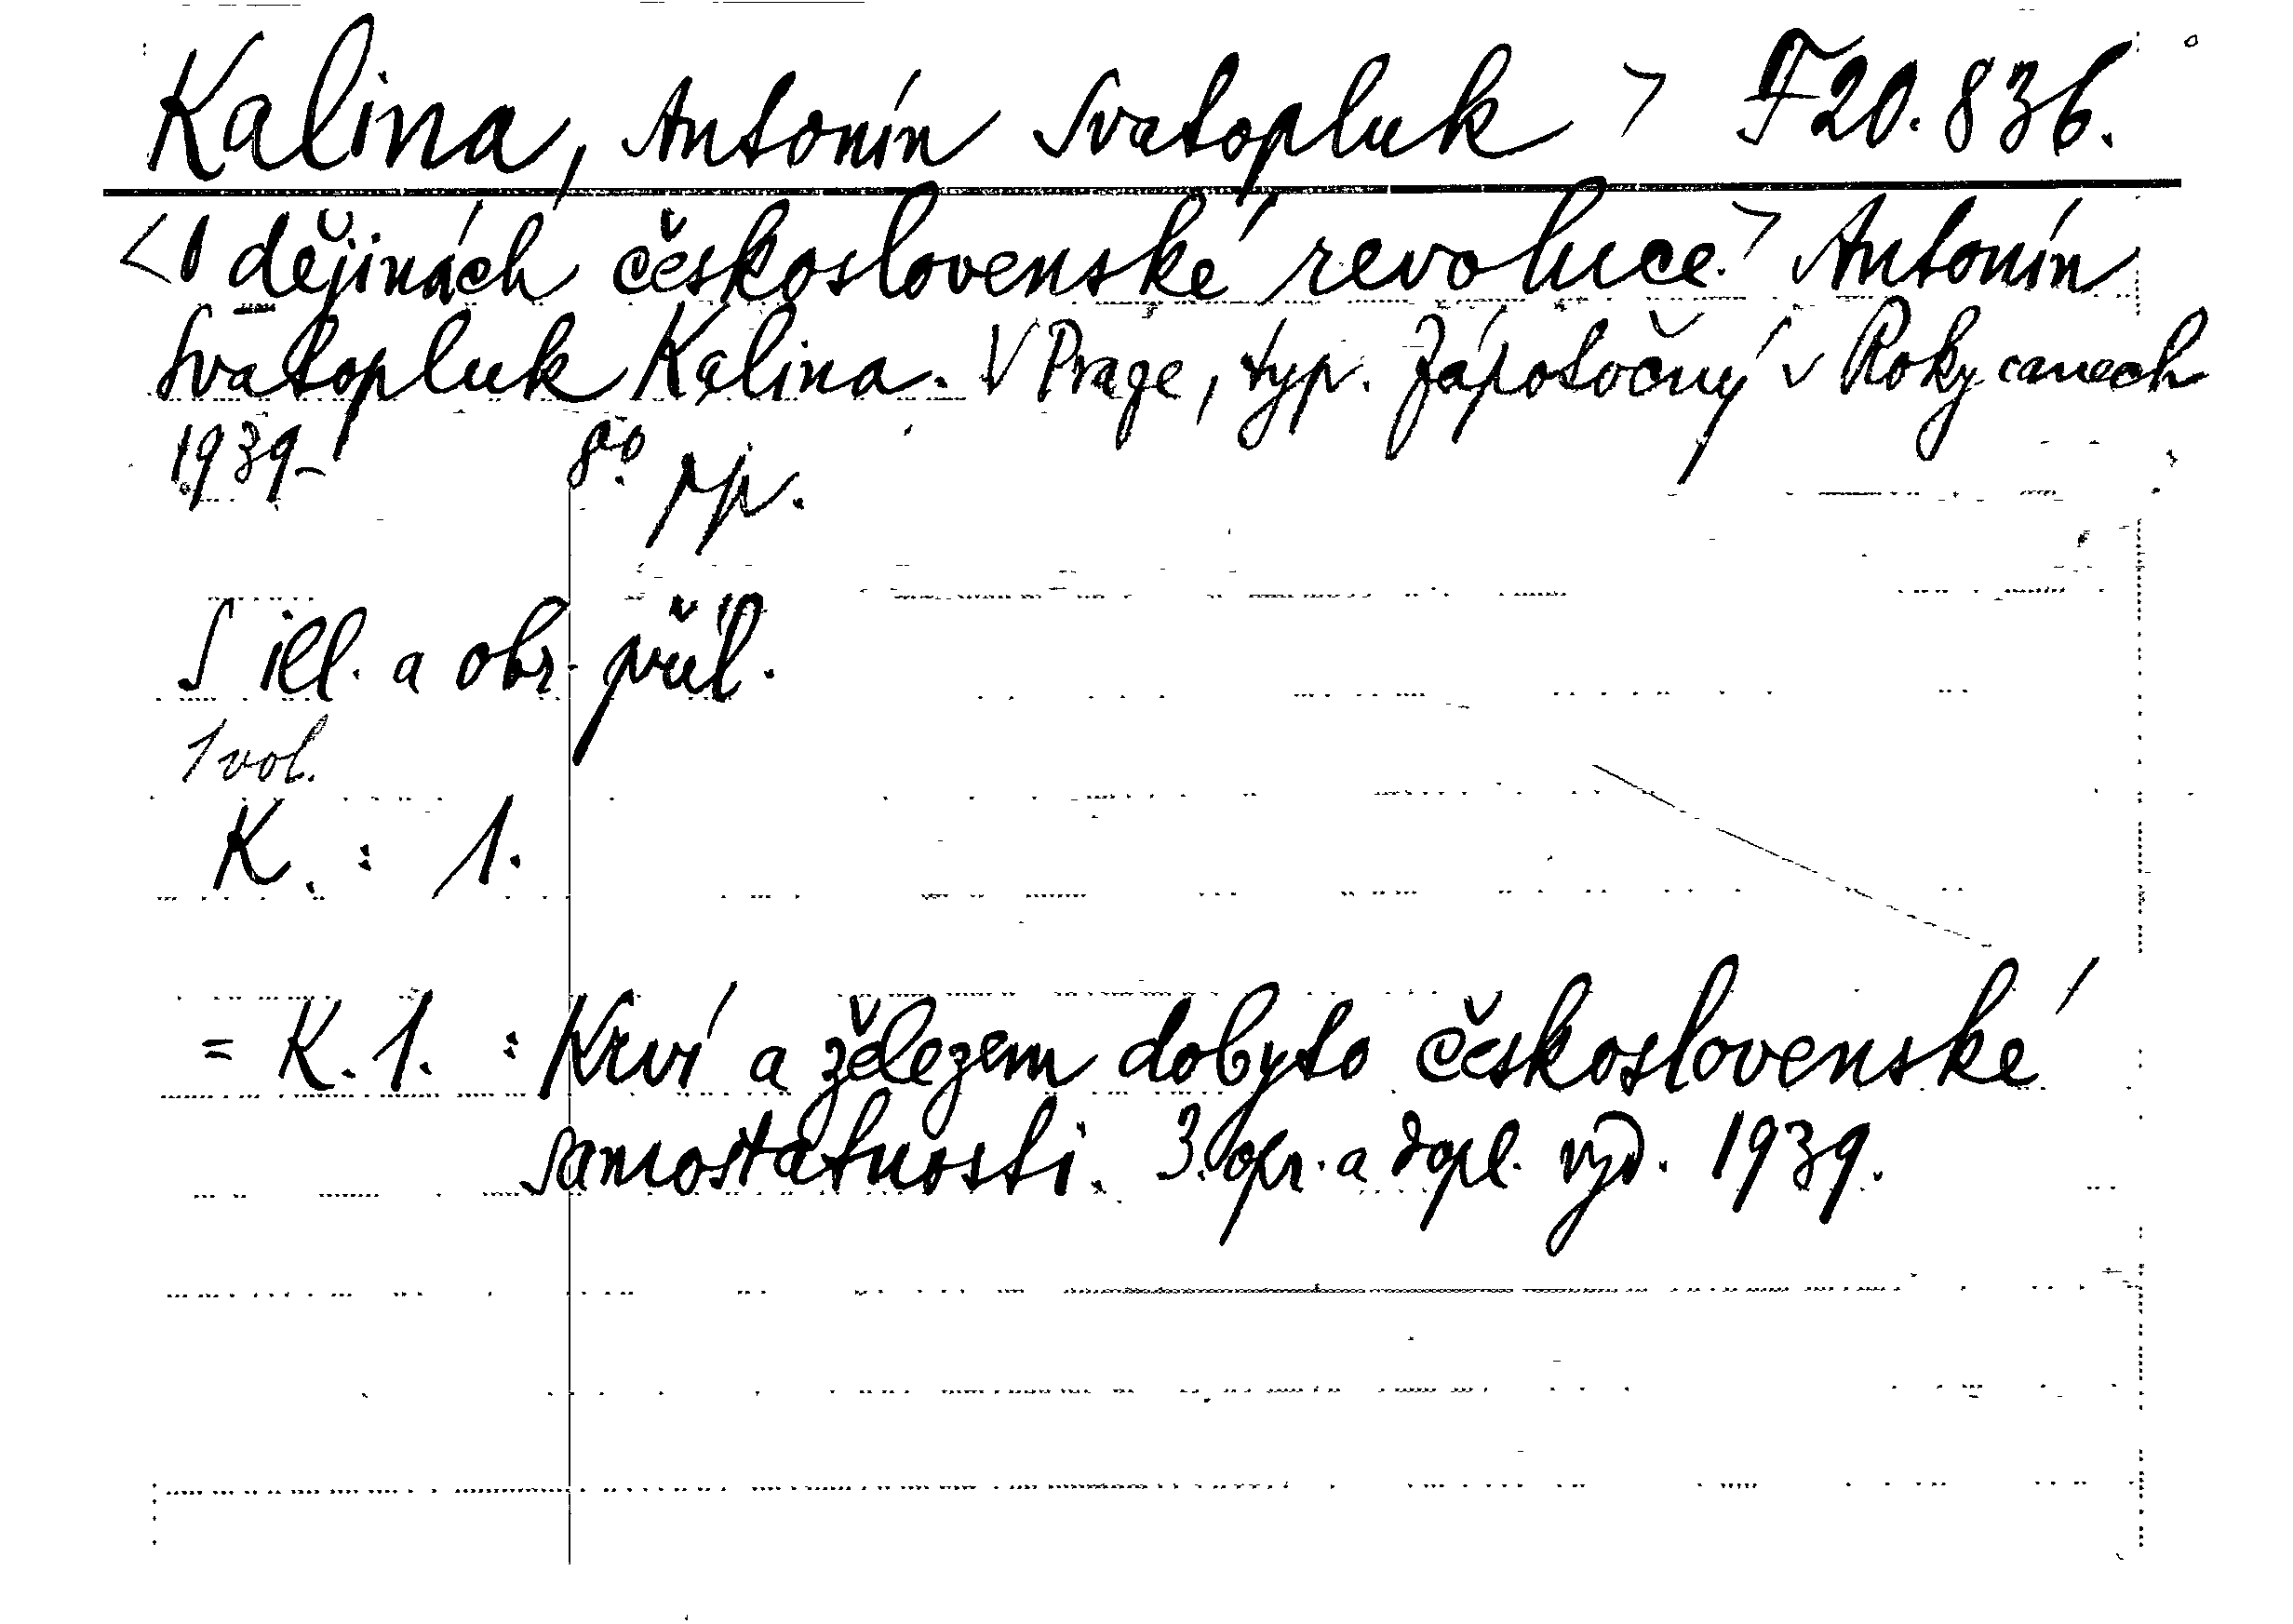 Kalina, Antonín Svatopluk > F20.836.
<O dějinách československé revoluce.> Antonín
Svatopluk Kalina. V Praze, typ. Zápotočný v Rokycanech
1939- 8°. pp.
S ill. a obr. příl.
1 vol.
K. : 1.
= K. 1. : Krví a železem dobyto československé
samostatnosti. 3. opr. a dopl. vyd. 1939.